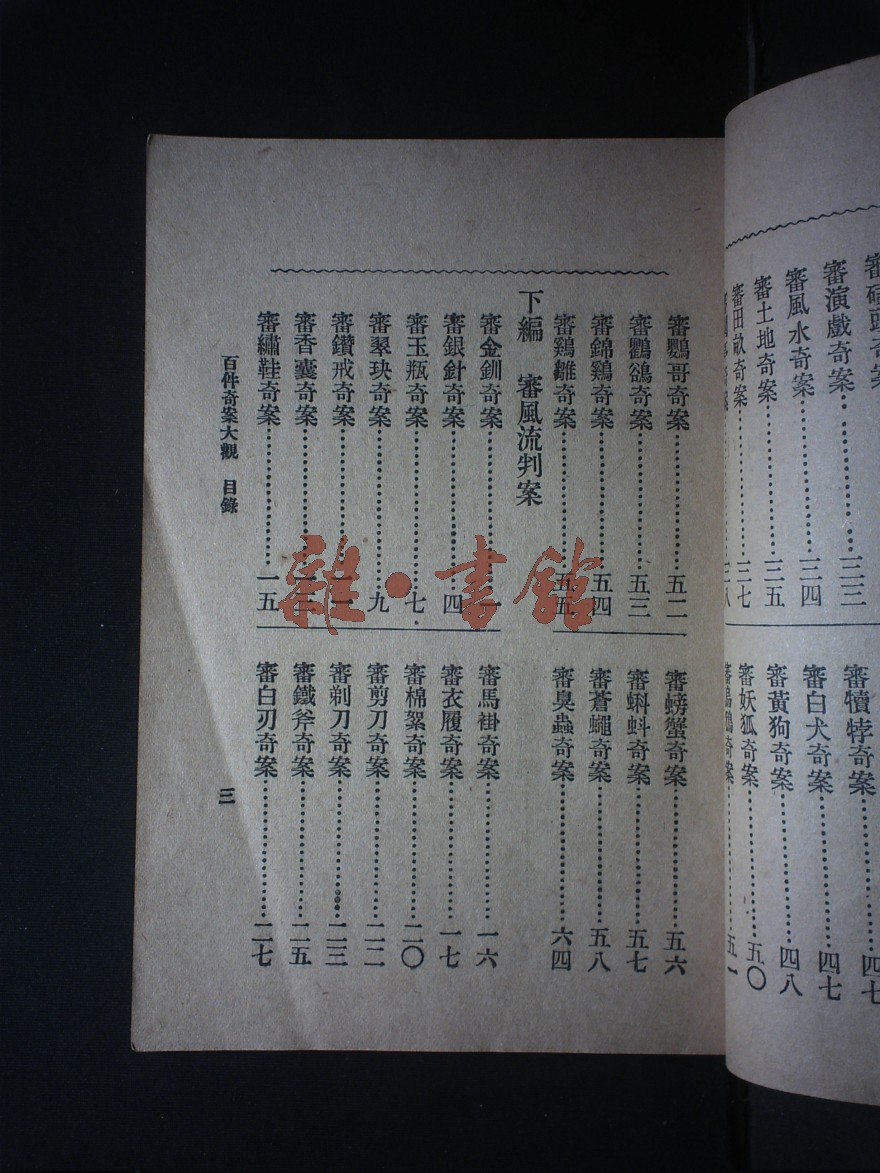 審演戲奇案……三三
審風水奇案……三四
審土地奇案……三五
審田畝奇案……三七
審犢牸奇案……四七
審白犬奇案……四七
審黃狗奇案……四八
審妖狐奇案……五〇
審烏鴉奇案……五一
審鸚哥奇案……五二
審鸜鵒奇案……五三
審錦鷄奇案……五四
審鷄雛奇案……五五
審螃蟹奇案……五六
審蝌蚪奇案……五七
審蒼蠅奇案……五八
審臭蟲奇案……六四
下編 審風流判案
審金釧奇案……一
審銀針奇案……四
審玉瓶奇案……七
審翠玦奇案……九
審鑽戒奇案……
審香囊奇案……
審繡鞋奇案……一五
審馬褂奇案……一六
審衣履奇案……一七
審棉絮奇案……二〇
審剪刀奇案……二二
審剃刀奇案……二三
審鐵斧奇案……二五
審白刃奇案……二七
百件奇案大觀 目錄
三
雜·書館